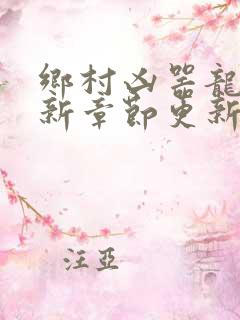 鄉村凶器龍
新章節更新
汪亞